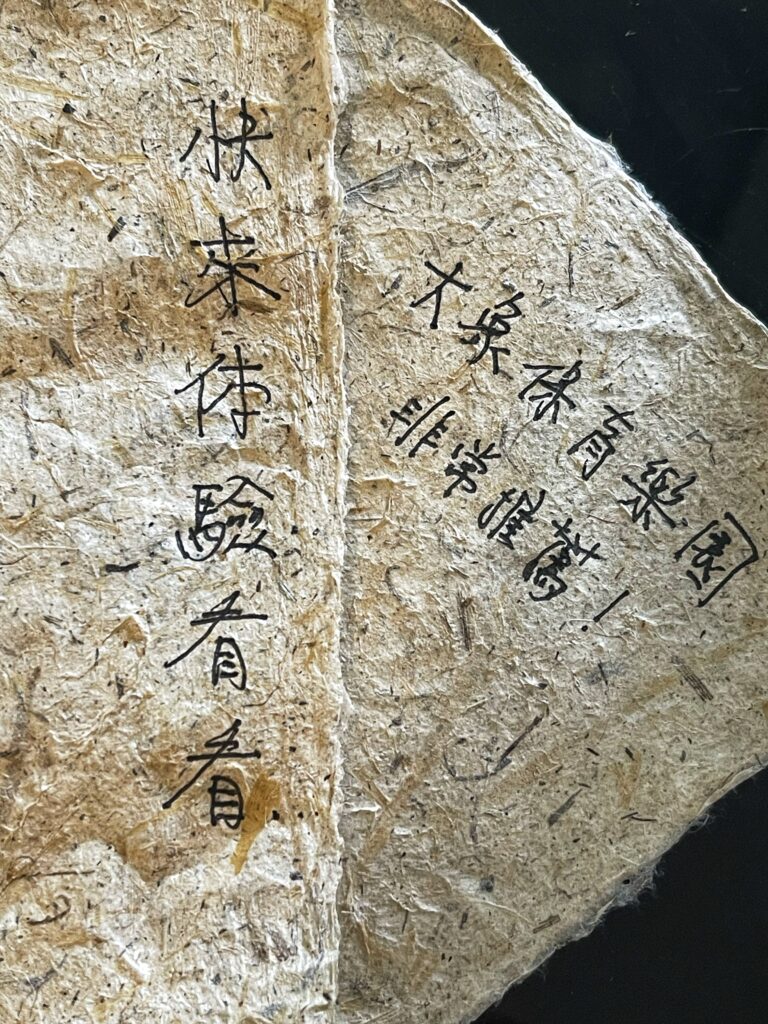 快来体驗看看
大象保育樂園
非常推薦！